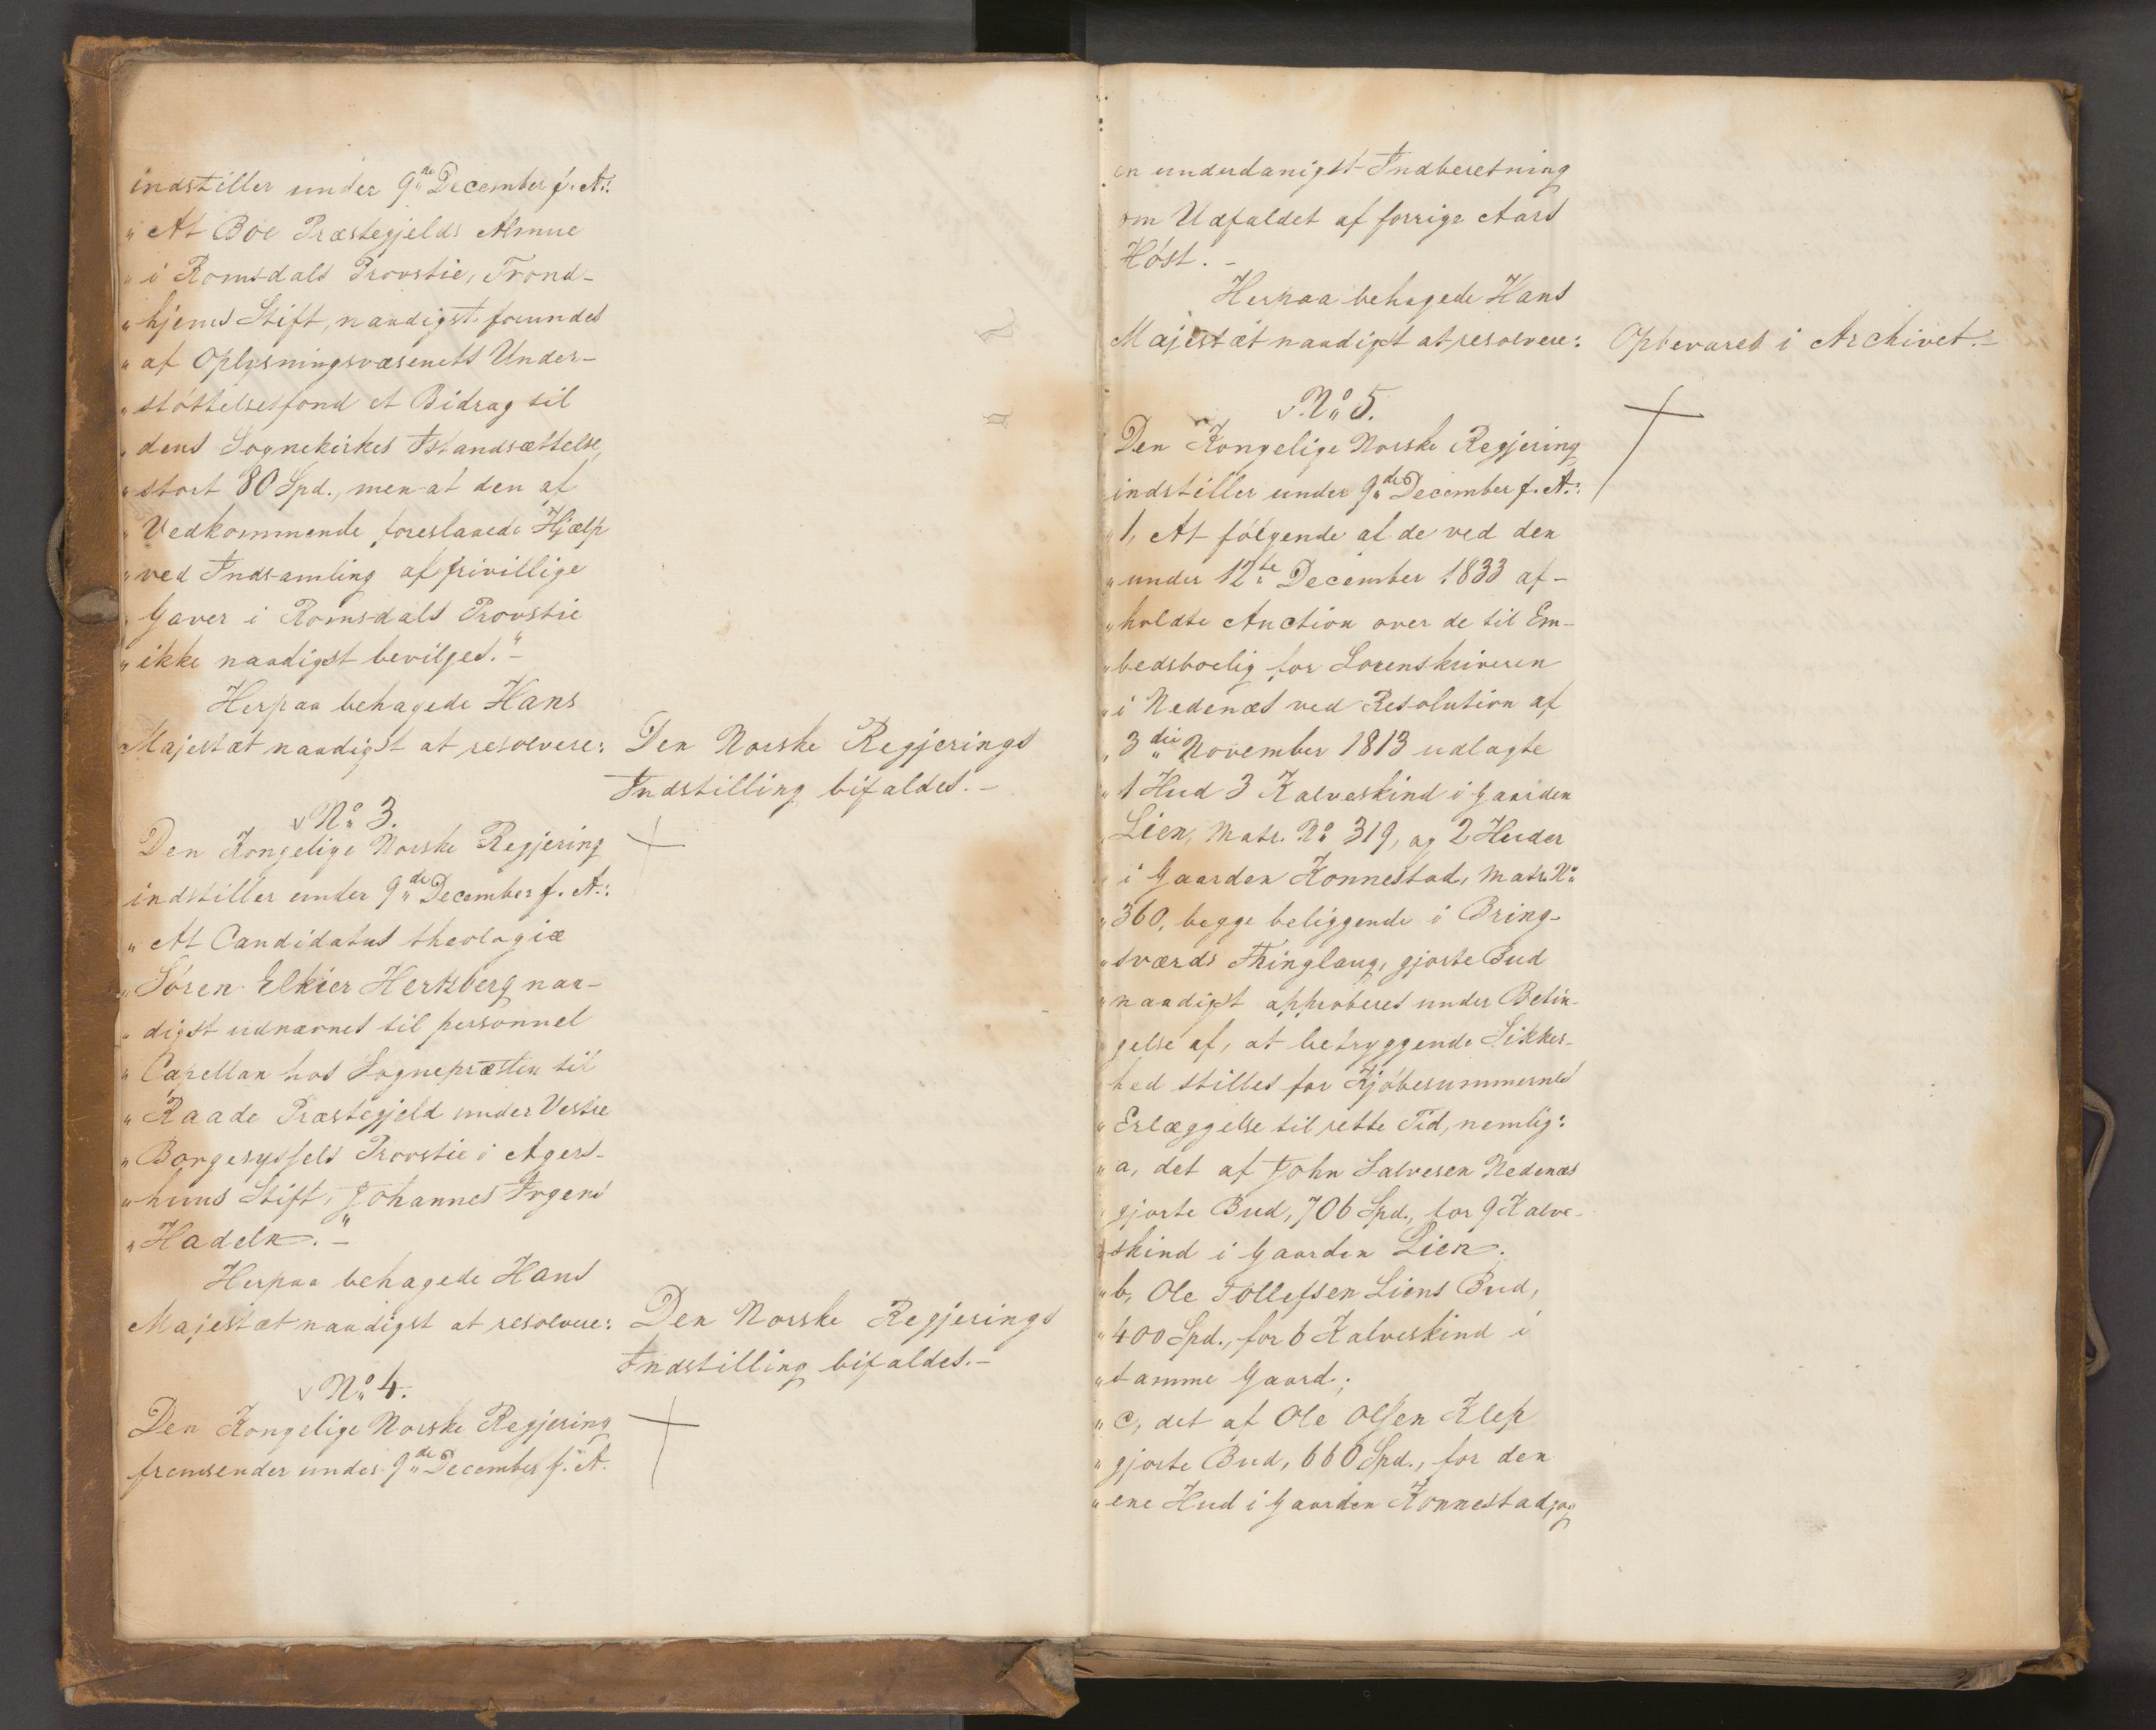 indstiller under 9de December f. A.:
"At Boe Præstegjelds Almue
"i Romsdals Provstie, Trond-
"hjems Stift, naadigst forundes
"af Oplysningsvæsenets Under-
"støttelsesfond et Bidrag til
"dens Sognekirkes Istandsættelse,
"stort 80 Spd., men at den af
"Vedkommende foreslaaede Hjælp
"ved Indsamling af frivillige
"Gaver i Romsdals Provstie
"ikke naadigst bevilges."-
Herpaa behagede Hans
Majestæt naadigst at resolvere:
Den Norske Regjerings
Indstilling bifaldes.-
No 3.
Den Kongelige Norske Regjering
indstiller under 9de December f. A.:
"At Candidatus theologiæ
"Søren Elkier Hertzberg naa-
"digst udnævnes til personnel
"Capellan hos Sognepræsten til
"Raade Præstegjeld under Vestre
"Borgesyssels Provstie i Agers-
"huus Stift, Johannes Irgens
"Hadeln."-
Herpaa behagede Hans
Majestæt naadigst at resolvere:
Den Norske Regjerings
Indstilling bifaldes.-
No 4.
Den Kongelige Norske Regjering
fremsender under 9de December f. A.
en underdanigst Indberetning
om Udfaldet af forrige Aars
Høst.-
Herpaa behagede Hans
Majestæt naadigst at resolvere:
Opbevares i Archivet.-
No 5.
Den Kongelige Norske Regjering
indstiller under 9de December f. A.:
"1, At følgende af de ved den
"under 12te December 1833 af-
"holdte Auction over de til Em-
"bedsboelig for Sorenskriveren
"i Nedenæs ved Resolution af
"3die November 1813 udlagte
"1 Hud 3 Kalveskind i Gaarden
"Lien, Matr. No 319, og 2 Huder
"i Gaarden Konnestad, Matr. No
"360, begge beliggende i Bring-
"sværds Thinglaug, gjorte Bud
"naadigst approberes under Betin-
"gelse af, at betryggende Sikker-
"hed stilles for Kjøbesummernes
"Erlæggelse til rette Tid, nemlig:
"a, det af John Salvesen Nedenæs
"gjorte Bud, 706 Spd., for 9 Kalve-
"skind i Gaarden Lien;
"b, Ole Tollefsen Liens Bud,
"400 Spd., for 6 Kalveskind i
"samme Gaard;
"c, det af Ole Olsen Klep
"gjorte Bud, 660 Spd., for den
"ene Hud i Gaarden Konnestad, og